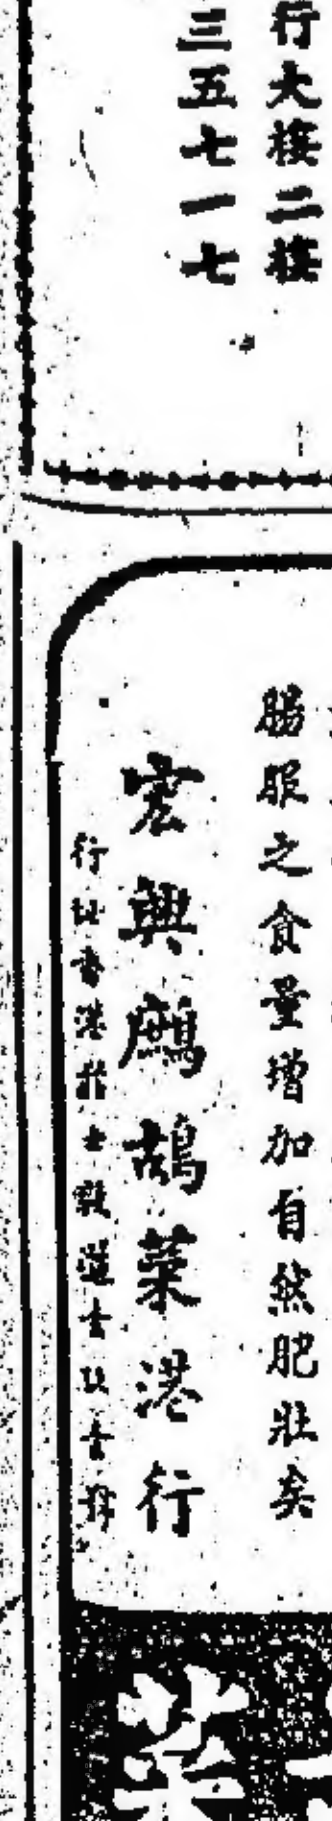 行大樓二樓
三五七一七
腸服之食量增加自然肥壯矣
宏興鷓鴣菜港行
行址香港
菜